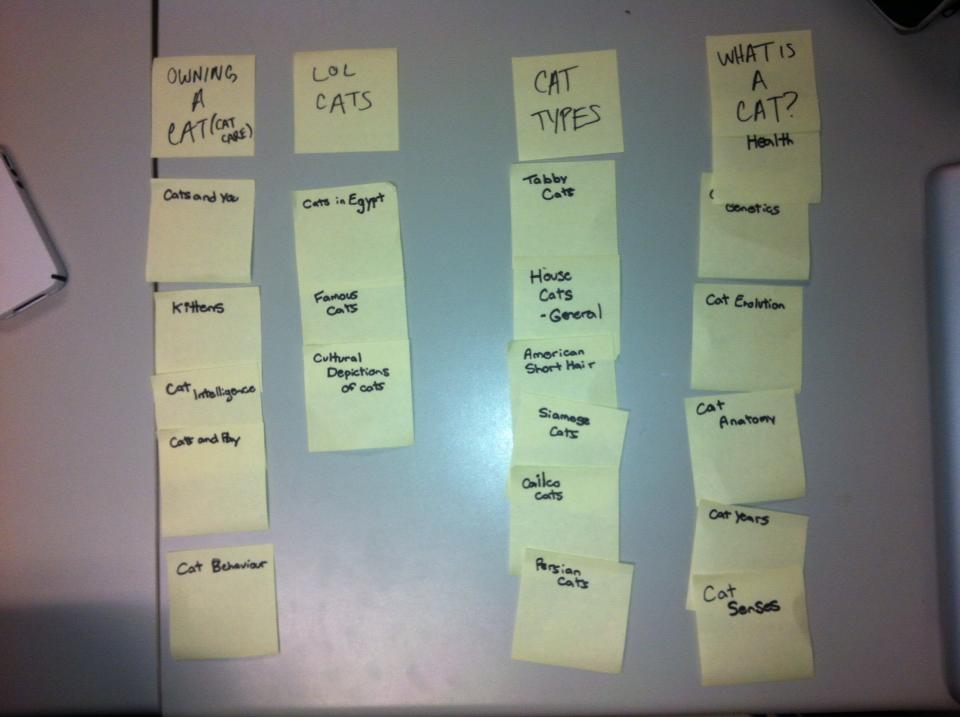 OWNING
A
CAT (CAT
CARE)
Cats and You
Kittens
Cat
Intelligence
Cats and Play
Cat Behaviour
LOL
CATS
Cats in Egypt
Famous
Cats
Cultural
Depictions
of cats
CAT
TYPES
Tabby
Cats
House
Cats
- General
American
Short Hair
Siamese
Cats
Cailco
Cats
Persian
Cats
WHAT IS
A
CAT?
Health
Genetics
Cat Evolution
Cat
Anatomy
Cat Years
Cat
Senses